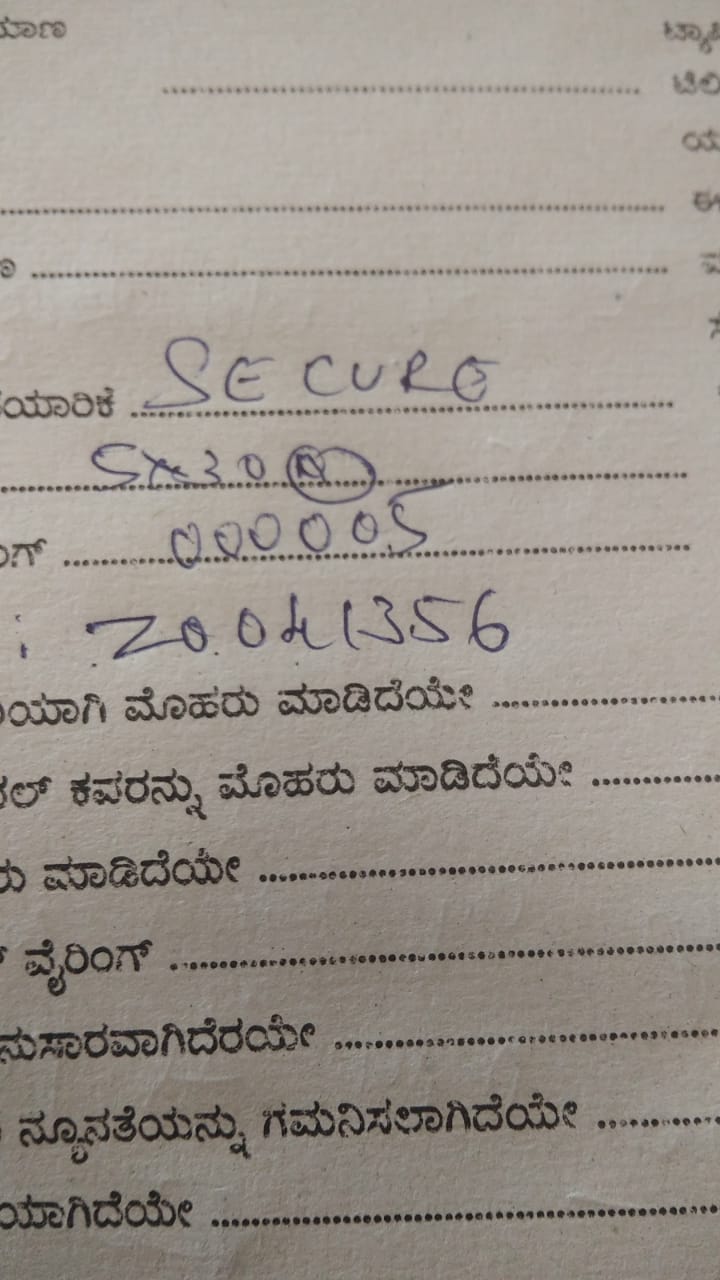 ಯಾಣ
..........
..........
..........
ಯಾರಿಕೆ .......... SECURE
..........
ಂಗ್ .......... 000005
: 20041356
ಯಾಗಿ ಮೊಹರು ಮಾಡಿದೆಯೇ ..........
ಲ್ ಕವರನ್ನು ಮೊಹರು ಮಾಡಿದೆಯೇ ..........
ರು ಮಾಡಿದೆಯೇ ..........
ವೈರಿಂಗ್ ..........
ನುಸಾರವಾಗಿದೆರಯೇ ..........
ನ್ಯೂನತೆಯನ್ನು ಗಮನಿಸಲಾಗಿದೆಯೇ ..........
ಯಾಗಿದೆಯೇ ..........